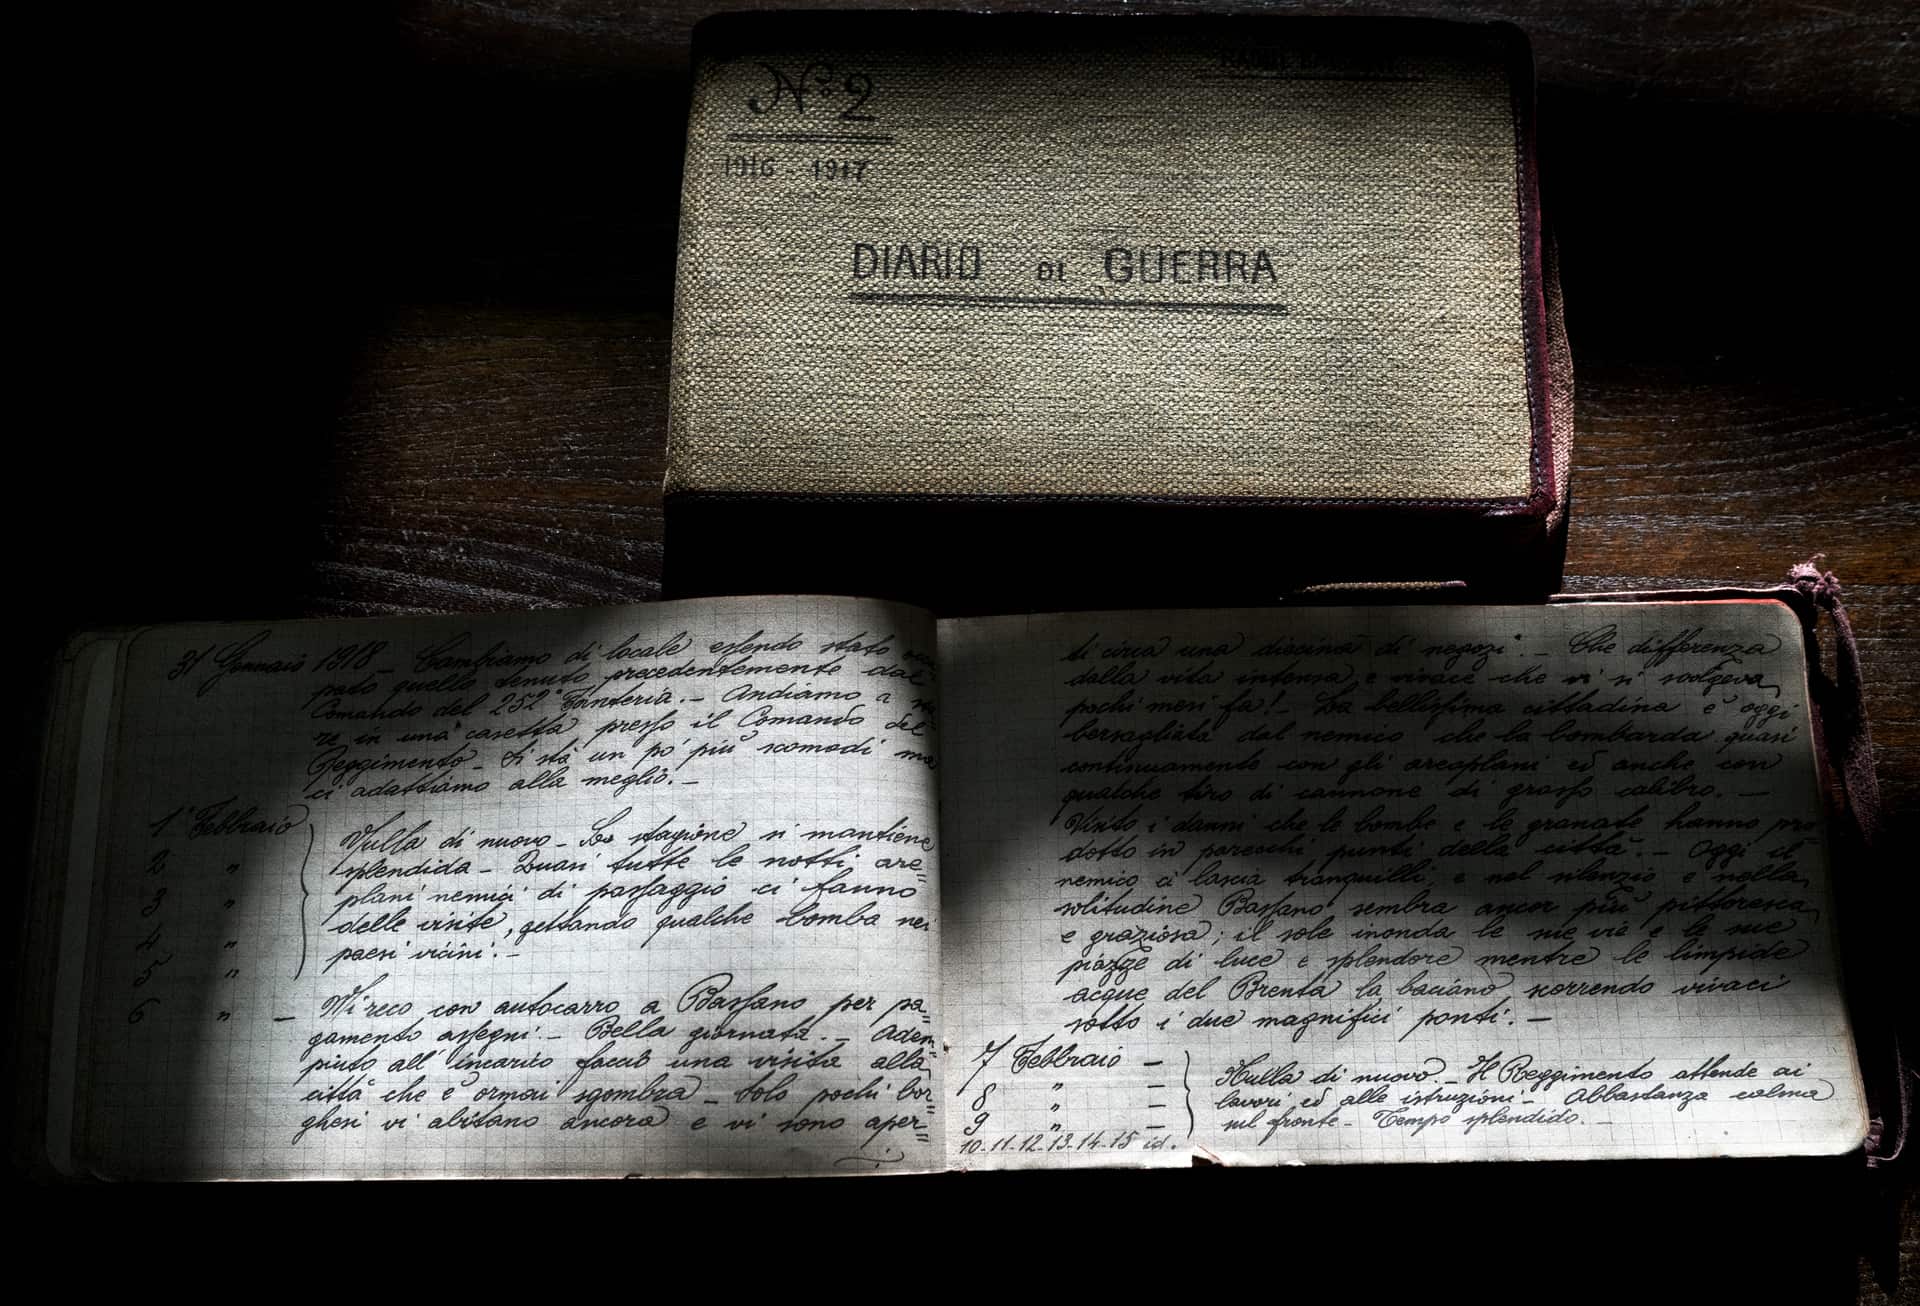 N.º 2
1916 - 1917
DIARIO DI GUERRA
31 Gennaio 1918 - Cambiamo di locale essendo stato occu-
pato quello tenuto precedentemente dal
Comando del 252º Fanteria. - Andiamo a sta-
re in una casetta presso il Comando del
Reggimento - Si stà un po' più scomodi ma
ci adattiamo alla meglio. -
1º Febbraio
2 "
3 "
4 "
5 "
Nulla di nuovo - La stagione si mantiene
splendida - Quasi tutte le notti are=
plani nemici di passaggio ci fanno
delle visite, gettando qualche bomba nei
paesi vicini. -
6 " - Mi reco con autocarro a Bassano per pa=
gamento assegni. - Bella giornata. - Adem=
piuto all'incarico faccio una visita alla
città che è ormai sgombra - Solo pochi bor=
ghesi vi abitano ancora e vi sono aper=
ti circa una diecina di negozi. - Che differenza
dalla vita intensa e vivace che vi si svolgeva
pochi mesi fa! - La bellissima cittadina è oggi
bersagliata dal nemico che la bombarda quasi
continuamente con gli areoplani ed anche con
qualche tiro di cannone di grosso calibro. -
Visito i danni che le bombe e le granate hanno pro
dotto in parecchi punti della città. - Oggi il
nemico ci lascia tranquilli e nel silenzio e nella
solitudine Bassano sembra ancor più pittoresca
e graziosa; il sole inonda le sue vie e le sue
piazze di luce e splendore mentre le limpide
acque del Brenta la baciano scorrendo vivaci
sotto i due magnifici ponti. -
7 Febbraio -
8 " -
9 " -
10-11-12-13-14-15 id.
Nulla di nuovo. - Il Reggimento attende ai
lavori ed alle istruzioni - Abbastanza calma
sul fronte - Tempo splendido. -